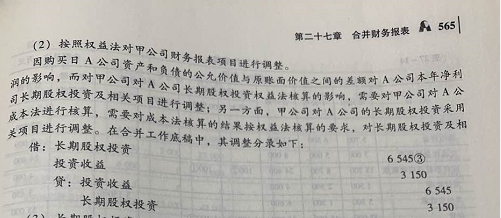 第二十七章 合并财务报表 565
(2) 按照权益法对甲公司财务报表项目进行调整。
因购买日A公司资产和负债的公允价值与原账面价值之间的差额对A公司本年净利
润的影响，而对甲公司对A公司长期股权投资权益法核算的影响，需要对甲公司对A公
司长期股权投资及相关项目进行调整；另一方面，甲公司对A公司的长期股权投资采用
成本法进行核算，需要对成本法核算的结果按权益法核算的要求，对长期股权投资及相
关项目进行调整。在合并工作底稿中，其调整分录如下：
借：长期股权投资 6 545③
投资收益 3 150
贷：投资收益 6 545
长期股权投资 3 150